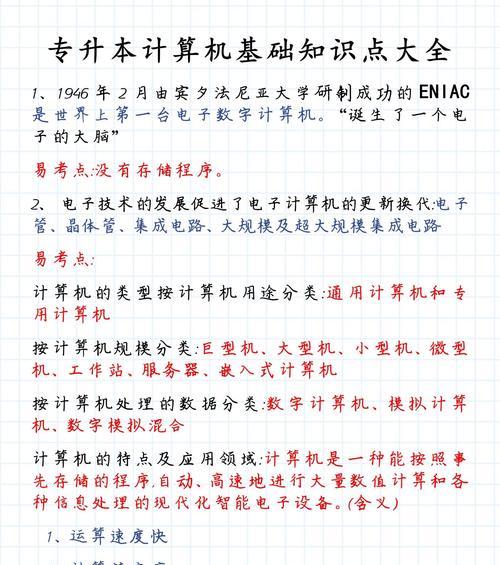 专升本计算机基础知识点大全
1、1946年2月由宾夕法尼亚大学研制成功的ENIAC
是世界上第一台电子数字计算机。“诞生了一个电
子的大脑”
易考点:没有存储程序。
2、电子技术的发展促进了电子计算机的更新换代:电子
管、晶体管、集成电路、大规模及超大规模集成电路
易考点:
计算机的类型按计算机用途分类:通用计算机和专
用计算机
按计算机规模分类:巨型机、大型机、小型机、微型
机、工作站、服务器、嵌入式计算机
按计算机处理的数据分类:数字计算机、模拟计算
机、数字模拟混合
计算机的特点及应用领域:计算机是一种能按照事
先存储的程序,自动、高速地进行大量数值计算和各
种信息处理的现代化智能电子设备。(含义)
1、运算速度快